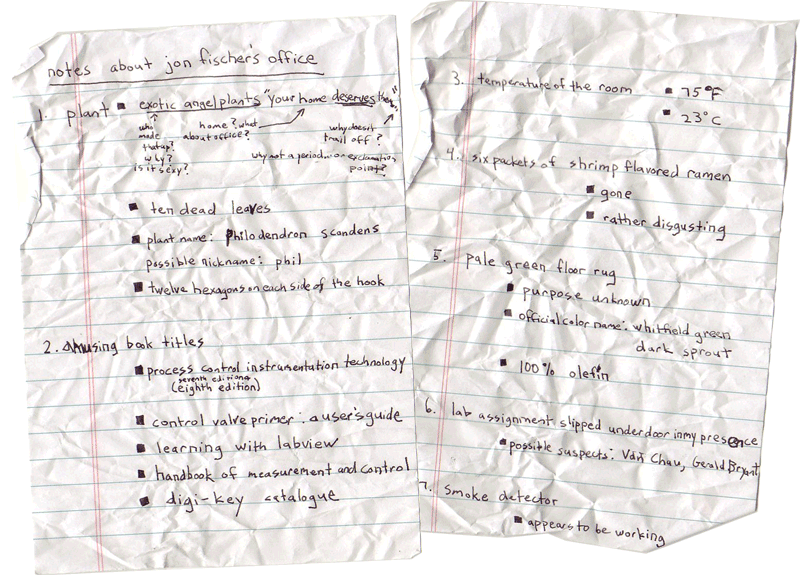 notes about jon fischer's office
1. plant ■ exotic angel plants "your home deserves them."
who made that up? why? is it sexy?
home? what about office?
why doesn't trail off?
why not a period... or exclamation point?
■ ten dead leaves
■ plant name: philodendron scandens
possible nickname: phil
■ twelve hexagons on each side of the hook
2. amusing book titles
■ process control instrumentation technology
seventh edition &
(eighth edition)
■ control valve primer: a user's guide
■ learning with labview
■ handbook of measurement and control
■ digi-key catalogue
3. temperature of the room ■ 75°F
■ 23°C
4. six packets of shrimp flavored ramen
■ gone
■ rather disgusting
5. pale green floor rug
■ purpose unknown
■ official color name: whitfield green
dark sprout
■ 100% olefin
6. lab assignment slipped under door in my presence
■ possible suspects: Van Chau, Gerald Bryant
7. smoke detector
■ appears to be working